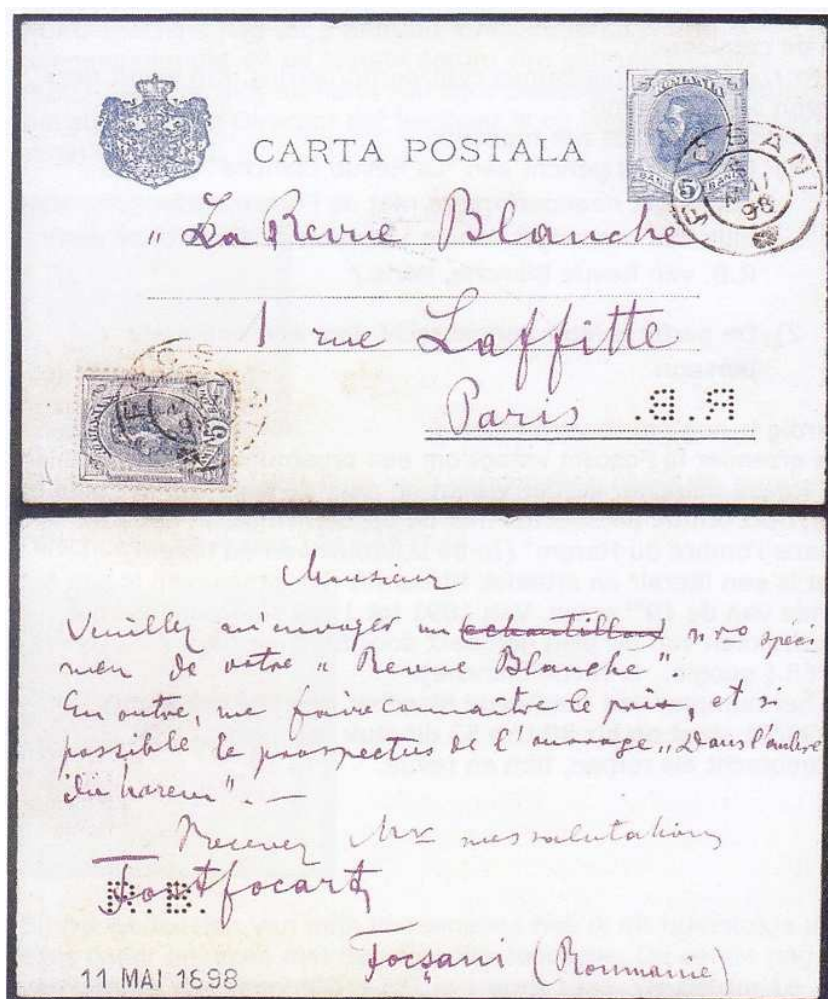 ROMANIA
CARTA POSTALA
BANI 5 BANI
FOCSANI
98
„La Revue Blanche
1 rue Laffitte
Paris
R.B.
ROMANIA
5
Monsieur
Veuillez m'envoyer un echantillon nro spéci
men de votre „Revue Blanche"
En outre, me faire connaitre le prix, et si
possible le prospectus de l'ouvrage „Dans l'ombre
du harem". —
Recevez Mr mes salutations
R.B.
Focşani (Roumanie)
11 MAI 1898